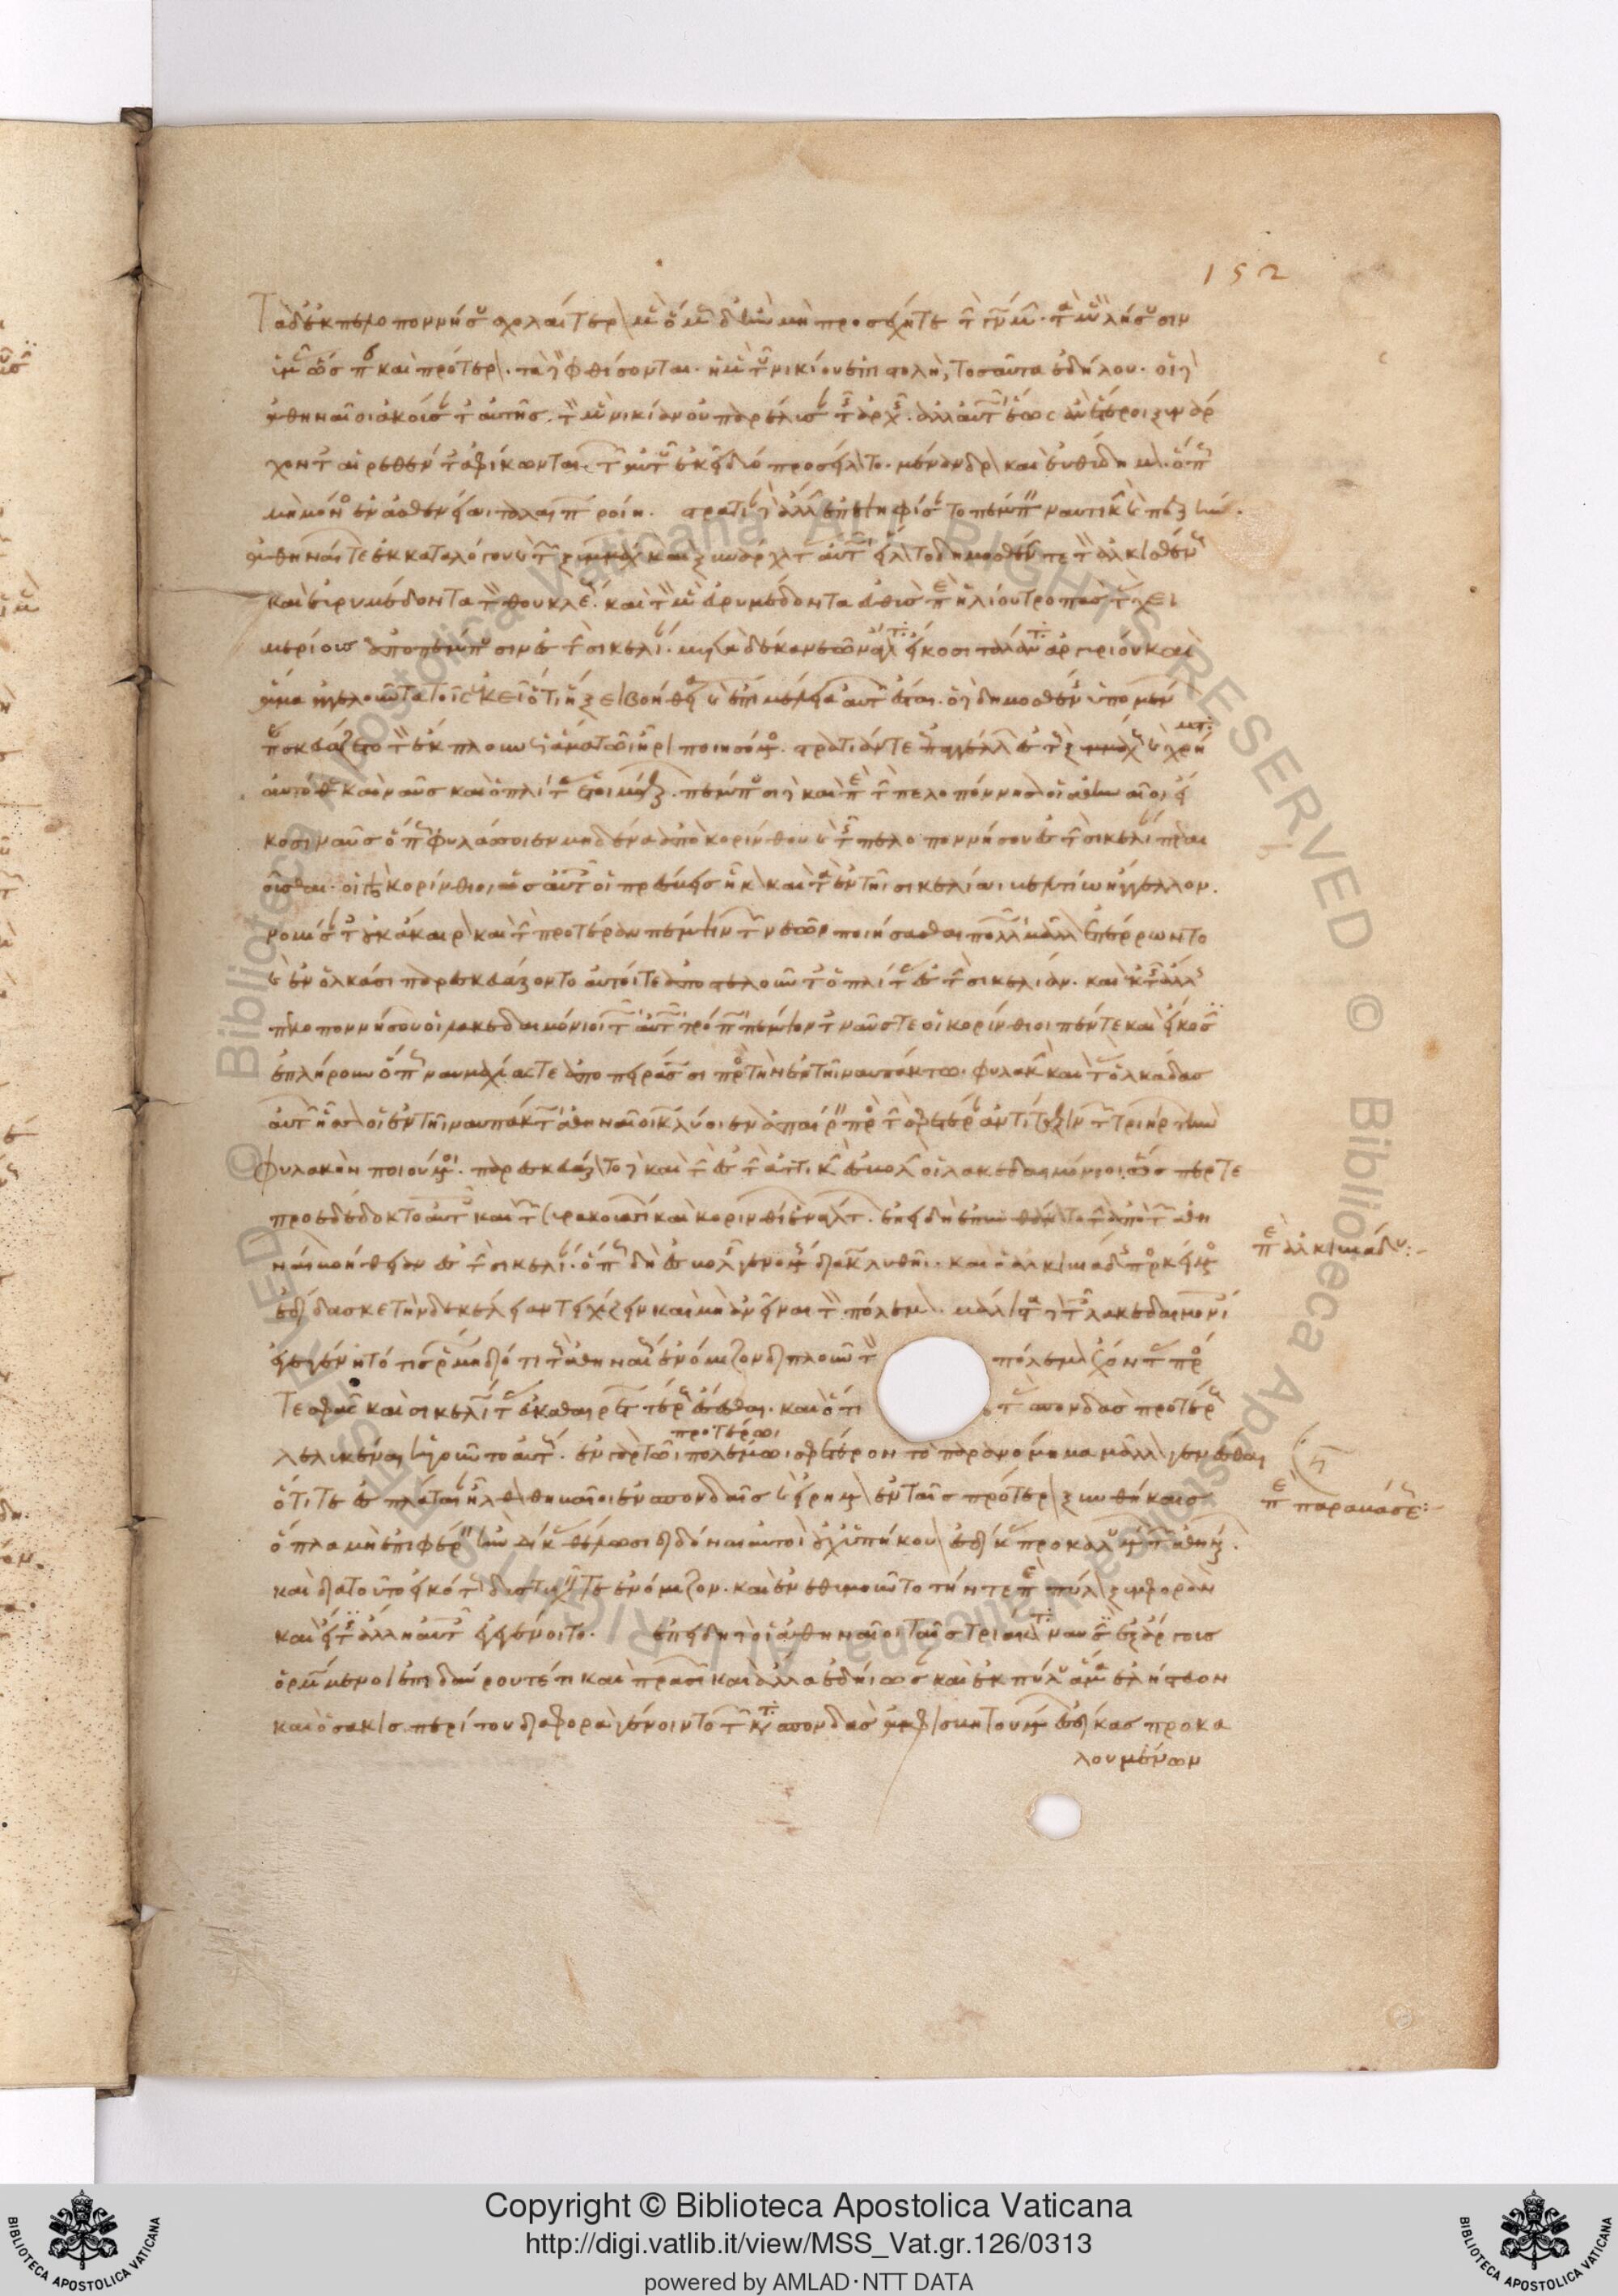 152
Τὰ δ' ἐκ πελοποννήσου σχολαίτερον μὲν ὅμως δ' ἢν μὴ προσέχητε τὴν γνώμην· τὰ μὲν λήσουσιν
ὑμᾶς ὥσπερ καὶ πρότερον· τὰ δὲ φθήσονται· ἡ μὲν τοῦ νικίου ἐπιστολὴ, τοσαῦτα ἐδήλου· οἱ δὲ
ἀθηναῖοι ἀκούσαντες αὐτῆς· τὸν μὲν νικίαν οὐ παρέλυσαν τῆς ἀρχῆς· ἀλλ' αὐτῶ ἕως ἂν ἕτεροι ξυνάρ
χοντες αἱρεθέντες ἀφίκωνται· τῶν αὐτοῦ ἐκεῖ δύο προσείλοντο· μένανδρον καὶ εὐθύδημον· ὅπως
μὴ μόνος ἐν ἀσθενείαι ταλαιπωροίη· στρατιὰν δὲ ἄλλην ἐπεψηφίσαντο πέμπειν ναυτικὴν καὶ πεζὴν·
ἀθηναίων τε ἐκ καταλόγου καὶ τῶν ξυμμάχων καὶ ξυνάρχοντας αὐτῶ εἵλοντο δημοσθένην τε τὸν ἀλκισθένους
καὶ εὐρυμέδοντα τὸν θουκλέους· καὶ τὸν μὲν εὐρυμέδοντα εὐθὺς περὶ ἡλίου τροπὰς τὰς χει
μερινὰς ἀποπέμπουσιν ἐς τὴν σικελίαν· μετὰ δέκα νεῶν ἄγοντα εἴκοσι τάλαντα ἀργυρίου καὶ
ἅμα ἀγγελοῦντα τοῖς ἐκεῖ ὅτι ἥξει βοήθεια καὶ ἐπιμέλεια αὐτῶν ἔσται· ὁ δὲ δημοσθένης ὑπομένων
παρεσκευάζετο τὸν ἔκπλουν ὡς ἅμα τῶι ἦρι ποιησόμενος· στρατιάν τε ἐπαγγέλλων ἐς τοὺς ξυμμάχους καὶ χρήματα
αὐτόθεν καὶ ναῦς καὶ ὁπλίτας ἑτοιμάζων· πέμπουσι δὲ καὶ περὶ τὴν πελοπόννησον οἱ ἀθηναῖοι εἴ
κοσι ναῦς ὅπως φυλάσσοιεν μηδένα ἀπὸ κορίνθου καὶ τῆς πελοποννήσου ἐς τὴν σικελίαν περαι
οῦσθαι· οἱ γὰρ κορίνθιοι, ὡς αὐτοῖς οἱ πρέσβεις ἧκον καὶ τὰ ἐν τῆι σικελίαι βελτίω ἤγγελλον·
νομίσαντες οὐκ ἄκαιρον καὶ τὴν προτέραν πέμψιν τῶν νεῶν ποιήσασθαι πολλῶ μᾶλλον ἐπέρρωντο
καὶ ἐν ὁλκάσι παρεσκευάζοντο αὐτοί τε ἀποστελοῦντες ὁπλίτας ἐς τὴν σικελίαν· καὶ ἐκ τῆς ἄλλης
πελοποννήσου οἱ λακεδαιμόνιοι τῶ αὐτῶ τρόπω πέμψοντες ναῦς τε οἱ κορίνθιοι πέντε καὶ εἴκοσιν
ἐπλήρουν ὅπως ναυμαχίας τε ἀποπειράσωσι πρὸς τὴν ἐν τῆι ναυπάκτω φυλακὴν καὶ τὰς ὁλκάδας
αὐτῶν ἧσσον οἱ ἐν τῆι ναυπάκτω ἀθηναῖοι κωλύοιεν ἀπαίρειν πρὸς τὴν σφετέραν ἀντίταξιν τῶν τριήρων τὴν
φυλακὴν ποιούμενοι· παρεσκευάζοντο δὲ καὶ τὴν ἐς τὴν ἀττικὴν ἐσβολὴν οἱ λακεδαιμόνιοι ὥσπερ τε
προεδέδοκτο αὐτοῖς καὶ τῶν συρακοσίων καὶ κορινθίων ἐναγόντων· ἐπειδὴ ἐπυνθάνοντο τὴν ἀπὸ τῶν ἀθη
ναίων βοήθειαν ἐς τὴν σικελίαν· ὅπως δὴ ἐσβολῆς γενομένης διακωλυθῆι· καὶ ὁ ἀλκιβιάδης προσκείμενος
ἐδίδασκε τὴν δεκέλειαν τειχίζειν καὶ μὴ ἀνιέναι τὸν πόλεμον· μάλιστα δὲ τοῖς λακεδαιμονίοις
ἐγεγένητό τις ῥώμη διότι τοὺς ἀθηναίους ἐνόμιζον διπλοῦν τὸν πόλεμον ἔχοντας πρός
τε σφᾶς καὶ σικελιώτας εὐκαθαιρετωτέρους ἔσεσθαι· καὶ ὅτι τὰς σπονδὰς προτέρους
προτέρωι
λελυκέναι ἡγοῦντο αὐτούς· ἐν γὰρ τῶι πολέμωι σφέτερον τὸ παρανόμημα μᾶλλον γενέσθαι
ὅτι τε ἐς πλάταιαν ἦλθον θηβαῖοι ἐν σπονδαῖς καὶ εἰρημένον ἐν ταῖς πρότερον ξυνθήκαις
ὅπλα μὴ ἐπιφέρειν ἢν δίκας θέλωσι διδόναι αὐτοὶ οὐχ ὑπήκουον ἐς δίκας προκαλουμένων τῶν ἀθηναίων·
καὶ διὰ τοῦτο εἰκότως δυστυχεῖν τε ἐνόμιζον· καὶ ἐνεθυμοῦντο τήν τε περὶ πύλον ξυμφορὰν
καὶ εἴ τις ἄλλη αὐτοῖς ἐγένοιτο· ἐπειδὴ δὲ οἱ ἀθηναῖοι ταῖς τριάκοντα ναυσὶν ἐξ ἄργους
ὁρμώμενοι ἐπιδαύρου τέ τι καὶ πρασιὰς καὶ ἄλλα ἐδήιωσαν καὶ ἐκ πύλου ἅμα ἐληίστευον
καὶ ὁσάκις περί του διαφοραὶ γένοιντο τῶν κατὰ σπονδὰς ἀμφισβητουμένων ἐς δίκας προκα
λουμένων
περὶ ἀλκιβιάδου:-
περὶ παραβάσεως:-
Copyright © Biblioteca Apostolica Vaticana
http://digi.vatlib.it/view/MSS_Vat.gr.126/0313
powered by AMLAD·NTT DATA
BIBLIOTECA APOSTOLICA VATICANA
BIBLIOTECA APOSTOLICA VATICANA
© Biblioteca Apostolica Vaticana ALL RIGHTS RESERVED